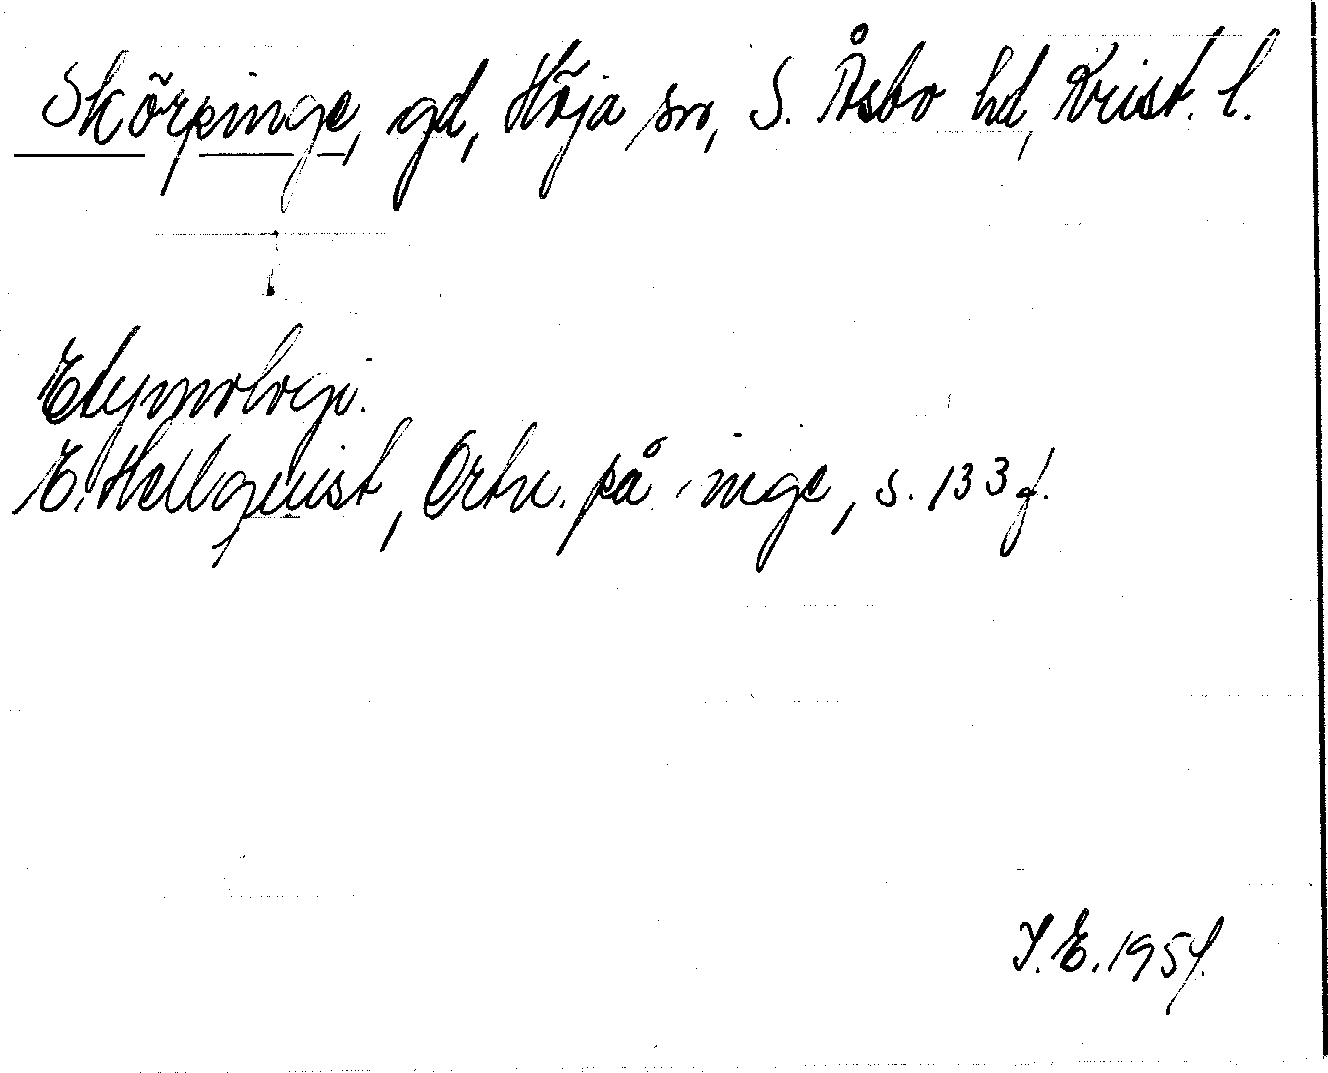 Skörpinge, gd, Höja sn, S. Åsbo hd, Krist. l.
Etymologi.
E. Hellquist, Ortn. på -inge, s. 133 f.